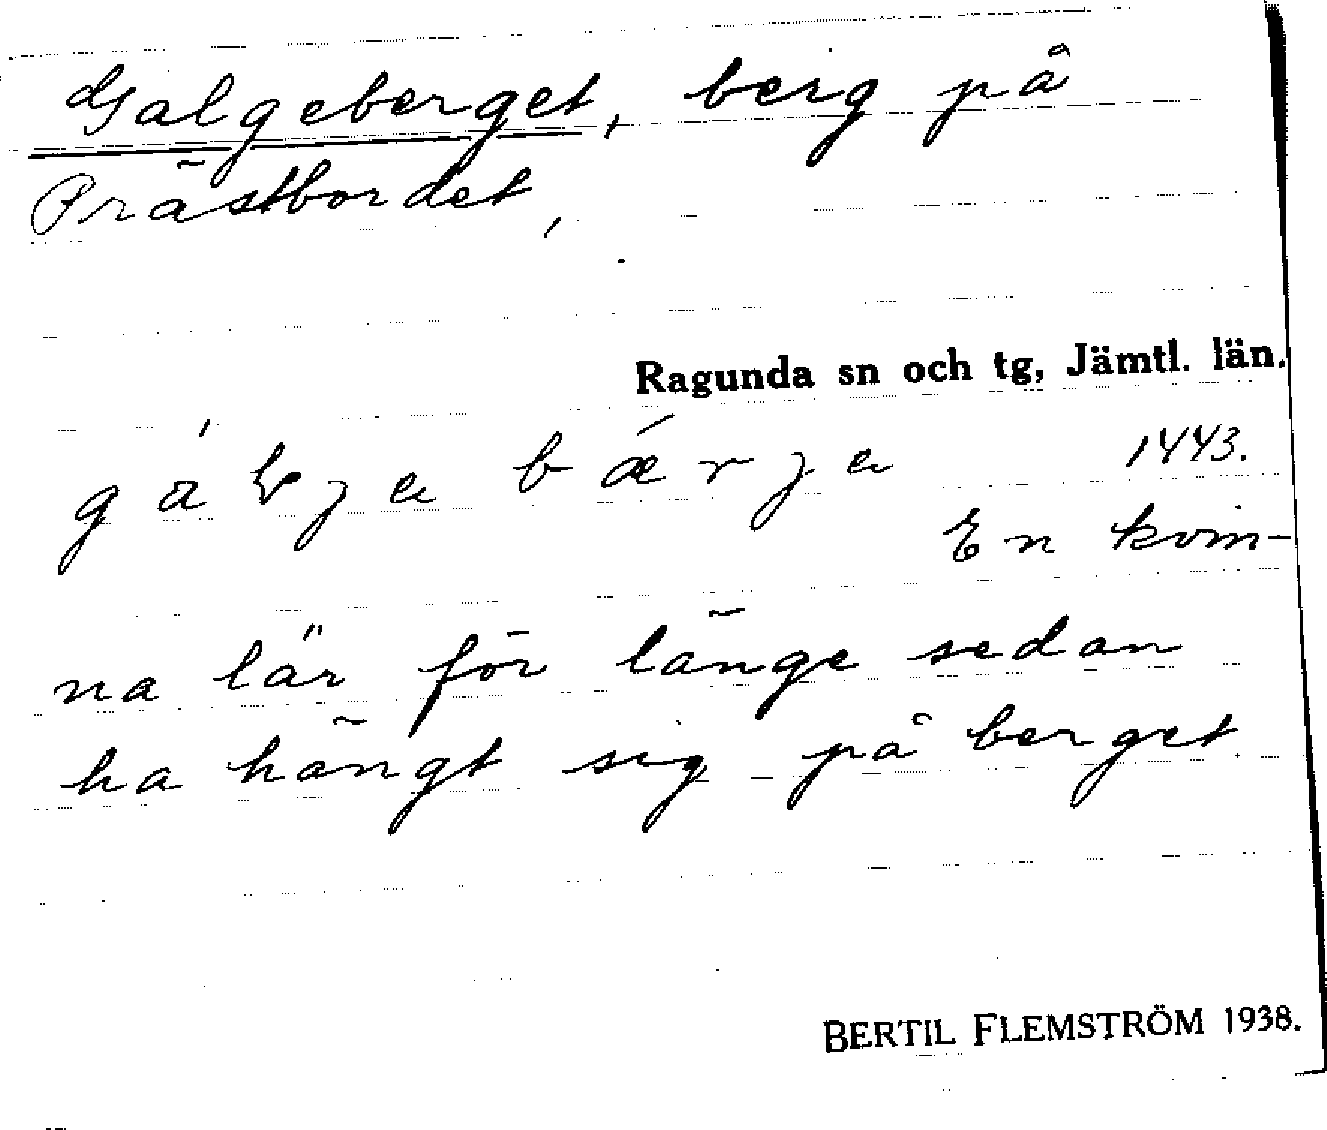 Galgeberget, berg på
Prästbordet,
Ragunda sn och tg, Jämtl. län.
1443.
En kvin-
na lär för länge sedan
ha hängt sig på berget.
BERTIL FLEMSTRÖM 1938.